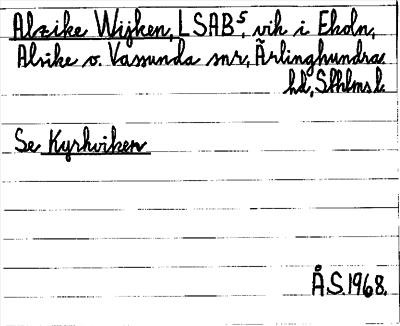 Alzike Wijken, LSAB⁵, vik i Ekoln,
Alsike o. Vassunda snr, Ärlinghundra
hd, Sthlms l.
Se Kyrkviken
Å S. 1968.